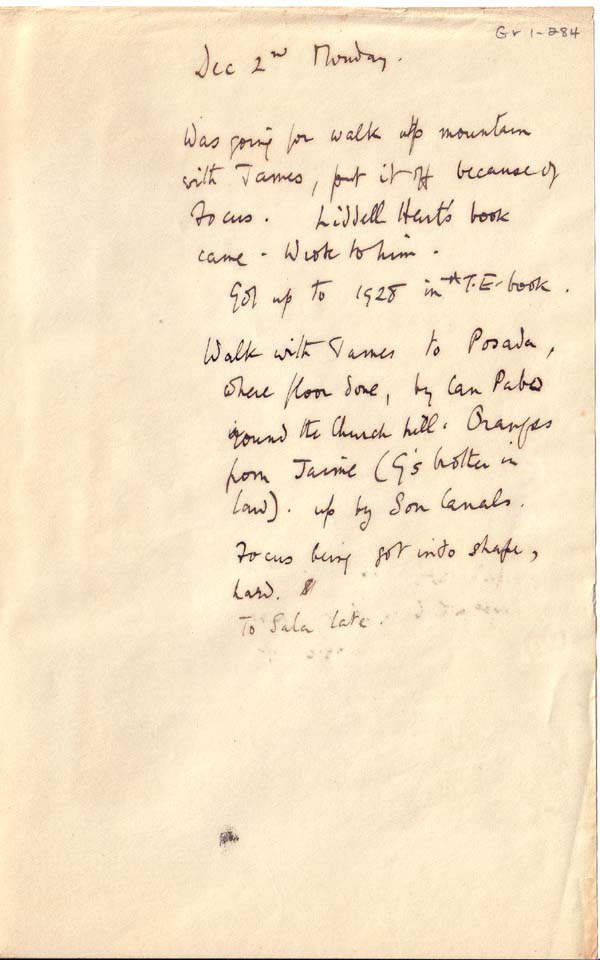 Gr 1-284
Dec 2nd Monday.
Was going for walk up mountain
with James, put it off because of
Focus. Liddell Hart's book
came - Wrote to him.
Got up to 1928 in T.E. book.
Walk with James to Posada,
where floor done, by Can Pabo
round the Church hill. Oranges
from Jaime (G's brother in
law). up by Son Canals.
Focus being got into shape,
hard.
To Sala late.